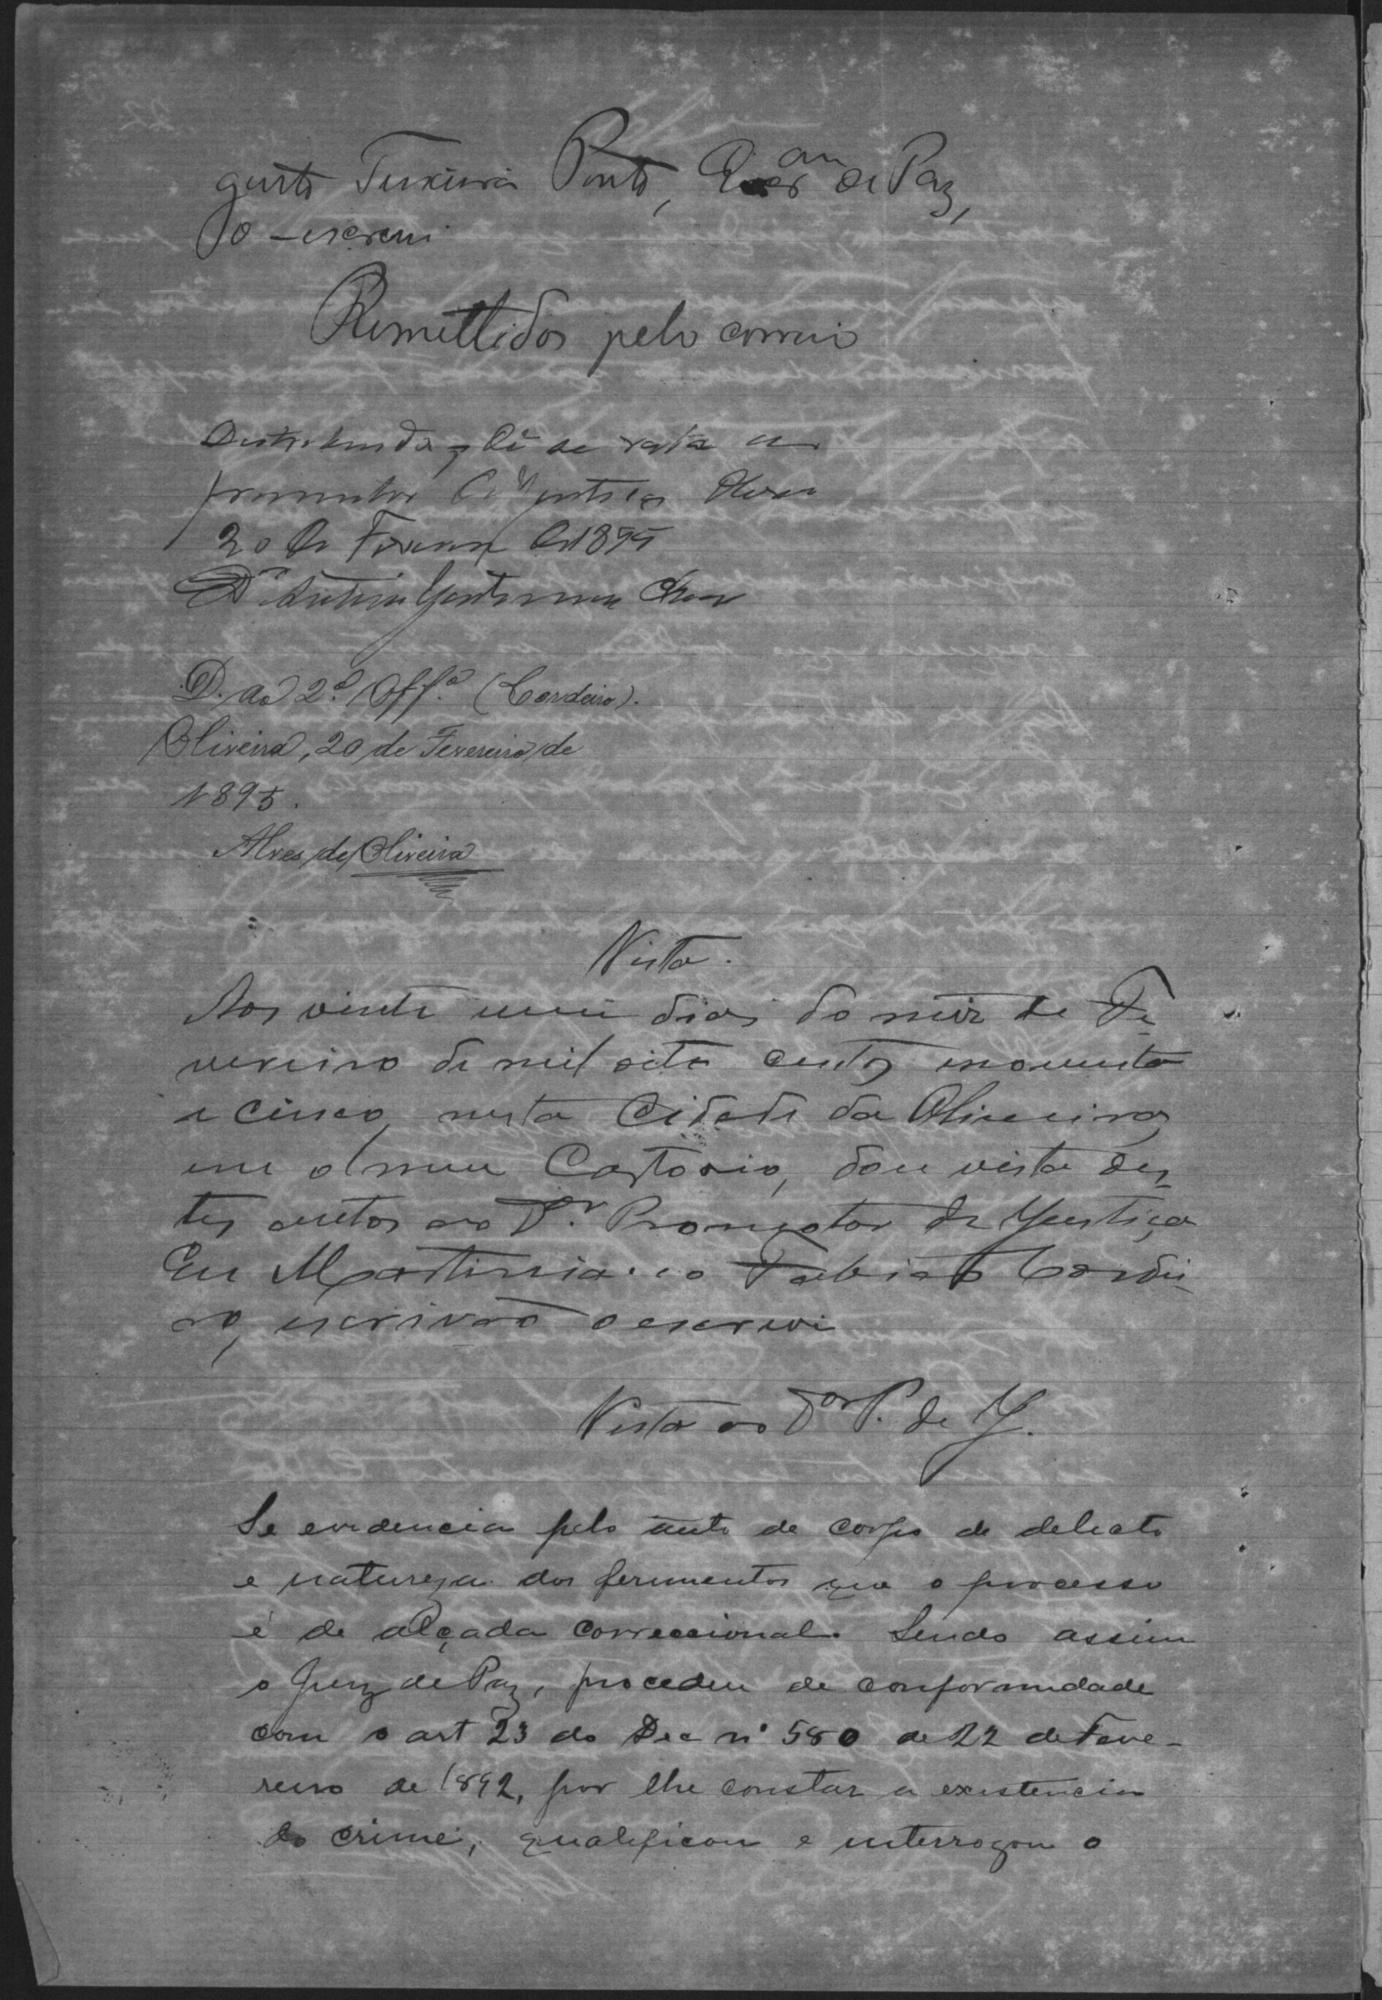 gusto Teixeira Pinto, Escr.am de Paz,
o escrevi
Remettidos pelo correio
Distribuida, dê se vista ao
promotor de Justiça
20 de Fevereiro de 1895
D. ao 2º Off.º (Cordeiro).
Oliveira, 20 de Fevereiro de
1895.
Alves de Oliveira
Vista.
Aos vinte um dias do mez de Fe-
vereiro de mil oito centos enoventa
e cinco, nesta Cidade da Oliveira,
em o meu Cartorio, dou vista des-
tes autos ao Dr. Promotor de Justiça
Eu Martiniano Fabiano Cordei
ro, escrivão o escrevi
Vista ao Dor P. de J.
Se evidencia pelo auto de corpo de delicto
e natureza dos ferimentos que o processo
é de alçada correccional. Sendo assim
o Juiz de Paz, procedeu de conformidade
com o art 23 do Dec nº 580 de 22 de Feve-
reiro de 1892, por lhe constar a existencia
do crime, qualificou e interrogou o